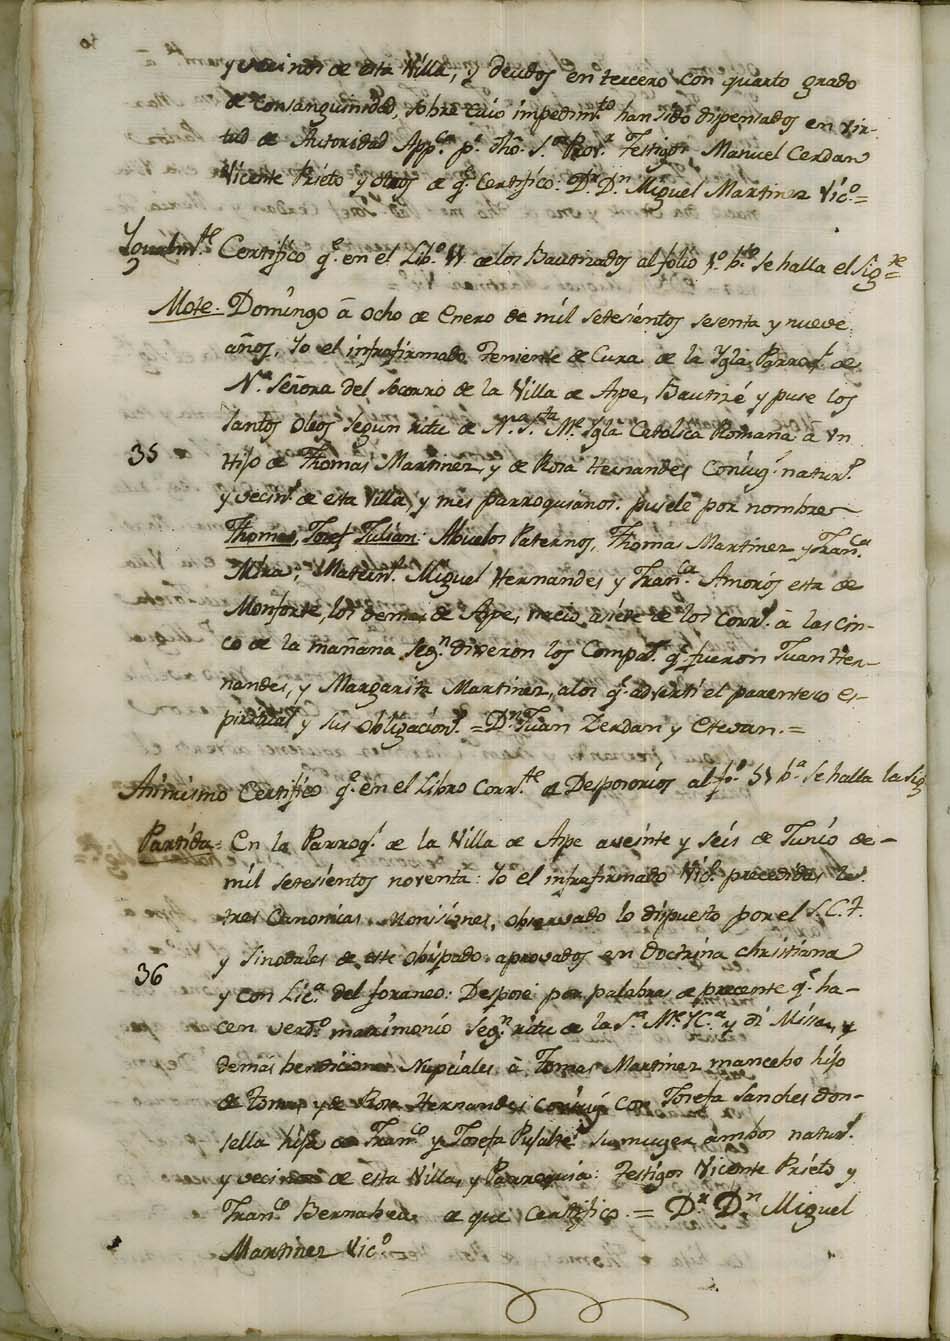 y vecinos de esta Villa, y deudos en tercero con quarto grado
de consanguinidad, sobre cuio impedimto. han sido dispensados en vir-
tud de Autoridad Appca. pr. dho. Sor. Provr. Testigos Manuel Cerdan
Vicente Prieto y otros de q. Certifico: Dr. Dn. Miguel Martinez Vico. =
Igualmte. Certifico qe. en el Libo. VI. de los Bautizados al folio 1o. bto. se halla el Sigte. =
Mote: Domingo â ocho de Enero de mil setesientos sesenta y nueve
años, Yo el infrafirmado Teniente de Cura de la Ygla. Parroql. de
Na. Señora del Socorro de la Villa de Aspe, Bautizé y puse los
santos oleos segun ritu de Nra. Sta. Me. Ygla. Catolica Romana a vn
35
Hijo de Thomas Martinez, y de Rosa Hernandes Coniug.s naturs.
y vecins. de esta Villa, y mis parroquianos: pusele por nombre
Thomas, Josef Julian: Abuelos Paternos, Thomas Martinez y Franca.
Mira; Materns. Miguel Hernandes y Franca. Amorós esta de
Monforte, los demas de Aspe, nacio asiete de los corrs. â las cin-
co de la mañana segn. dixeron los Compas. q. fueron Juan Her-
nandes, y Margarita Martinez, alos q. advertí el parentesco es-
piritual y sus obligacions. = Dn. Juan Zerdan y Etevan. =
Asimismo Certifico qe. en el Libro Corrte. de Desposorios al fo. 51 ba. se halla la Sig
Partida = En la Parroql. de la Villa de Aspe aveinte y seis de Junio de
mil setesientos noventa: Yo el infrafirmado Vico. precedidas las
tres Canonicas Monisiones, observado lo dispuesto por el S. C. T.
y Sinodales de este obispado: aprovados en doctrina christiana
36
y con Lica. del foraneo: Desposé por palabras de precente q. ha-
cen verdo. matrimonio segn. ritu de la Sa. Me. Yca. y di Missa, y
demas bendiciones Nupciales â Tomas Martinez mancebo hijo
de Tomas y de Rosa Hernandes coniug. con Josefa Sanches don-
sella hija de Franco. y Josefa Pujalte su muger ambos naturs.
y vecinos de esta Villa, y Parroquia: Testigos Vicente Prieto y
Franco. Bernabeu, de que certifico. = Dr. Dn. Miguel
Martinez Vico.